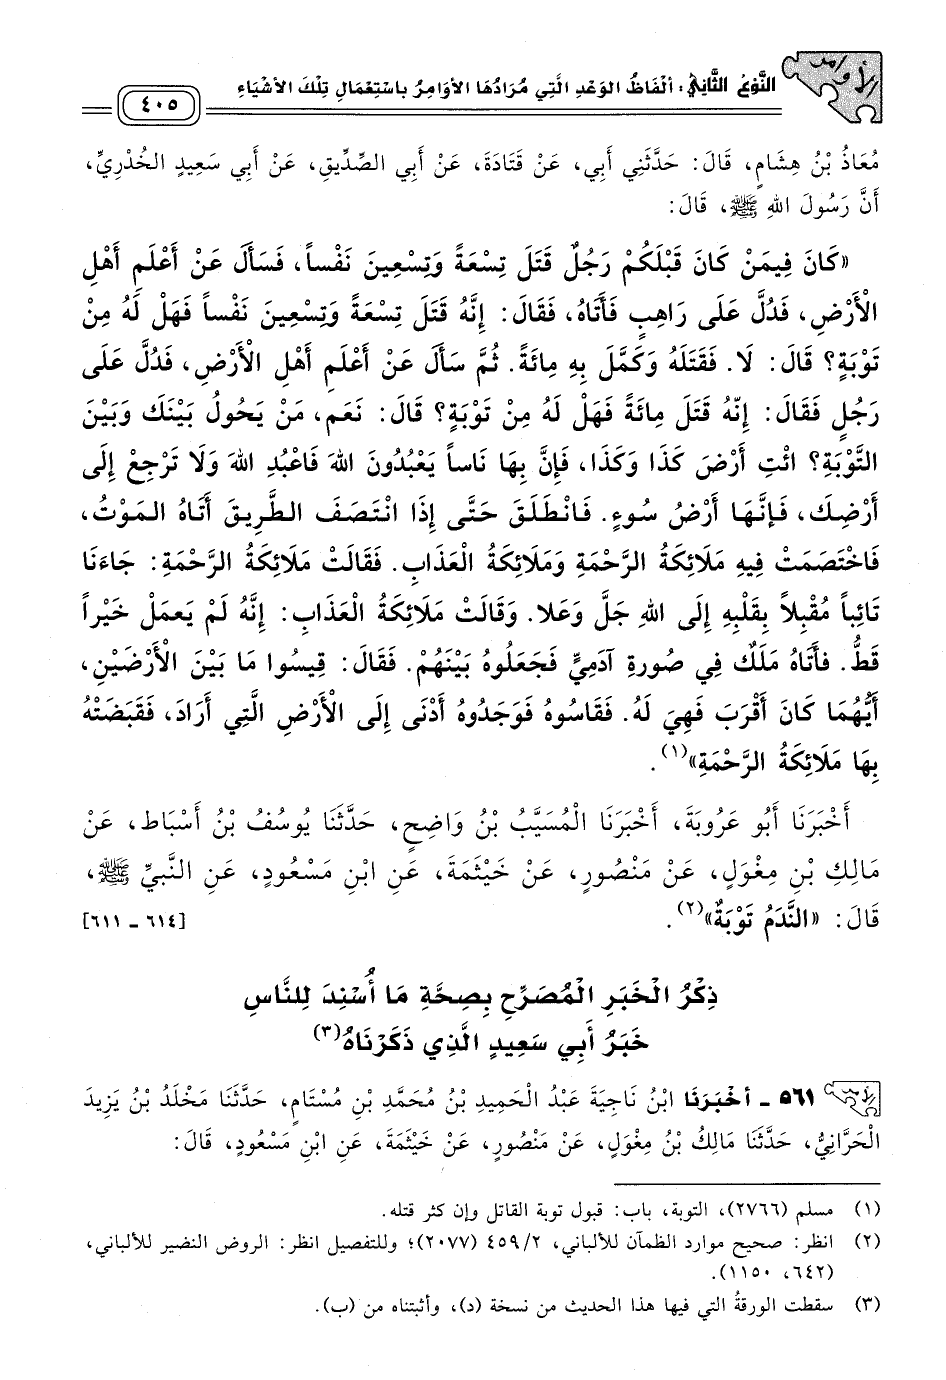 الأوامر
النَّوْعُ الثَّانِي: ألْفَاظُ الوَعْدِ الَّتِي مُرَادُهَا الأوَامِرُ بِاسْتِعْمَالِ تِلْكَ الأشْيَاءِ
٤٠٥
مُعَاذُ بْنُ هِشَامٍ، قَالَ: حَدَّثَنِي أَبِي، عَنْ قَتَادَةَ، عَنْ أَبِي الصِّدِّيقِ، عَنْ أَبِي سَعِيدٍ الخُدْرِيِّ،
أَنَّ رَسُولَ اللهِ ﷺ، قَالَ:
«كَانَ فِيمَنْ كَانَ قَبْلَكُمْ رَجُلٌ قَتَلَ تِسْعَةً وَتِسْعِينَ نَفْساً، فَسَأَلَ عَنْ أَعْلَمِ أَهْلِ
الْأَرْضِ، فَدُلَّ عَلَى رَاهِبٍ فَأَتَاهُ، فَقَالَ: إِنَّهُ قَتَلَ تِسْعَةً وَتِسْعِينَ نَفْساً فَهَلْ لَهُ مِنْ
تَوْبَةٍ؟ قَالَ: لَا. فَقَتَلَهُ وَكَمَّلَ بِهِ مِائَةً. ثُمَّ سَأَلَ عَنْ أَعْلَمِ أَهْلِ الْأَرْضِ، فَدُلَّ عَلَى
رَجُلٍ فَقَالَ: إِنَّهُ قَتَلَ مِائَةً فَهَلْ لَهُ مِنْ تَوْبَةٍ؟ قَالَ: نَعَم، مَنْ يَحُولُ بَيْنَكَ وَبَيْنَ
التَّوْبَةِ؟ ائْتِ أَرْضَ كَذَا وَكَذَا، فَإِنَّ بِهَا نَاساً يَعْبُدُونَ اللهَ فَاعْبُدِ اللهَ وَلَا تَرْجِعْ إِلَى
أَرْضِكَ، فَإِنَّهَا أَرْضُ سُوءٍ. فَانْطَلَقَ حَتَّى إِذَا انْتَصَفَ الطَّرِيقَ أَتَاهُ المَوْتُ،
فَاخْتَصَمَتْ فِيهِ مَلَائِكَةُ الرَّحْمَةِ وَمَلَائِكَةُ الْعَذَابِ. فَقَالَتْ مَلَائِكَةُ الرَّحْمَةِ: جَاءَنَا
تَائِباً مُقْبِلاً بِقَلْبِهِ إِلَى اللهِ جَلَّ وَعَلا. وَقَالَتْ مَلَائِكَةُ الْعَذَابِ: إِنَّهُ لَمْ يَعمَلْ خَيْراً
قَطُّ. فأَتَاهُ مَلَكٌ فِي صُورةِ آدَمِيٍّ فَجَعَلُوهُ بَيْنَهُمْ. فَقَالَ: قِيسُوا مَا بَيْنَ الأَرْضَيْنِ،
أَيُّهُمَا كَانَ أَقْرَبَ فَهِيَ لَهُ. فَقَاسُوهُ فَوَجَدُوهُ أَدْنَى إِلَى الْأَرْضِ الَّتِي أَرَادَ، فَقَبَضَتْهُ
بِهَا مَلَائِكَةُ الرَّحْمَةِ»(١).
أَخْبَرَنَا أَبُو عَرُوبَةَ، أَخْبَرَنَا الْمُسَيَّبُ بْنُ وَاضِحٍ، حَدَّثَنَا يُوسُفُ بْنُ أَسْبَاط، عَنْ
مَالِكِ بْنِ مِغْوَلٍ، عَنْ مَنْصُورٍ، عَنْ خَيْثمَةَ، عَنِ ابْنِ مَسْعُودٍ، عَنِ النَّبِيِّ ﷺ،
قَالَ: «النَّدَمُ تَوْبَةٌ»(٢). [٦١٤ ـ ٦١١]
ذِكْرُ الْخَبَرِ الْمُصَرِّحِ بِصِحَّةِ مَا أُسْنِدَ لِلنَّاسِ
خَبَرُ أَبِي سَعِيدٍ الَّذِي ذَكَرْنَاهُ(٣)
٥٦١ ـ أَخْبَرَنَا ابْنُ نَاجِيَةَ عَبْدُ الْحَمِيدِ بْنُ مُحَمَّدِ بْنِ مُسْتَامٍ، حَدَّثَنَا مَخْلَدُ بْنُ يَزِيدَ
الْحَرَّانِيُّ، حَدَّثَنَا مَالِكُ بْنُ مِغْوَلٍ، عَنْ مَنْصُورٍ، عَنْ خَيْثمَةَ، عَنِ ابْنِ مَسْعُودٍ، قَالَ:
(١) مسلم (٢٧٦٦)، التوبة، باب: قبول توبة القاتل وإن كثر قتله.
(٢) انظر: صحيح موارد الظمآن للألباني، ٤٥٩/٢ (٢٠٧٧)؛ وللتفصيل انظر: الروض النضير للألباني،
(٦٤٢، ١١٥٠).
(٣) سقطت الورقةُ التي فيها هذا الحديث من نسخة (د)، وأثبتناه من (ب).